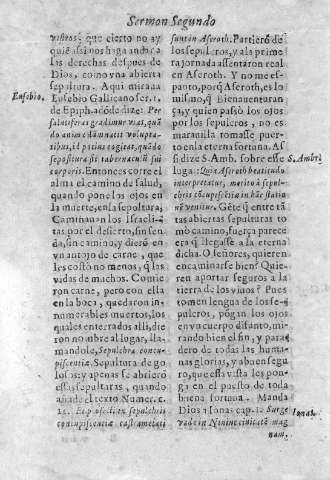 Sermon Segundo
vistros: que cierto no ay
quiē assi nos haga andar a
las derechas despues de
Dios, como vna abierta
sepultura. Aqui miraua
Eusebio,
Eusebio Gallicano ser. 1.
de Epiph. adōde dize: Per
salutiferas gradimur vias, quā
do anime damnatis volupta-
tibus, id potius cogitat, quādo
sepositura sit tabernaculū sui
corporis. Entonces corre el
alma el camino de salud,
quando pone los ojos en
la muerte, en la sepoltura;
Caminauan los Israeli-
tas por el desierto, sin sen
da, sin camino, y dierō en
vn antojo de carne, que
les costò no menos, q̄ las
vidas de muchos. Comie
ron carne, pero con ella
en la boca, quedaron in-
numerables muertos, los
quales enterrados alli, die
ron nombre al lugar, lla-
mandole, Sepulchra concu-
piscentiæ. Sepultura de go
losos: y apenas se abrierō
essas sepulturas, quando
añade el texto Numer. c.
11. Egressi de sepulchris
concupiscentiæ castrametati
sunt in Aseroth. Partierō de
los sepulcros, y a la prime
ra jornada assentaron real
en Aseroth. Y no me es-
panto, porq̄ Aseroth, es lo
mismo, q̄ Bienauenturan
ça, y quien passò los ojos
por los sepulcros, no es
marauilla tomasse puer-
to en la eterna fortuna. As
si dize S. Amb. sobre esse
S. Ambr.
luga: Quia Aseroth beatitudo
interpretatur, meritò à sepul-
chris cōcupiscētiæ in hāc statio
nē venitur. Gēte q̄ entre tā
tas abiertas sepulturas to
mò camino, fuerça parece
era q̄ llegasse a la eterna
dicha. O señores, quieren
encaminarse bien? Quie-
ren aportar seguros a la
tierra de los viuos? Pues
tomen lengua de los se-
pulcros, pōgan los ojos
en vn cuerpo difunto, mi-
rando bien el fin, y para
dero de todas las huma-
nas glorias, y aha en segu
ro, que essa vista les pon-
ga en el puesto de toda
buena fortuna. Manda
Dios a Ionas cap. 1. Surge
Ionas.
vade in Niniue ciuitatē mag
nam.